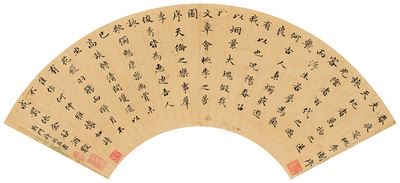 春夜宴桃李園序
夫
天地者萬物之逆
旅
光陰者百代之過
客
而浮生若夢為歡
幾
何古人秉燭夜遊
良
有以也況陽春召
我
以煙景大塊假我
以
文章會桃李之芳
園
序天倫之樂事群
季
俊秀皆為惠連吾人
詠
歌獨慚康樂幽賞未
已
高談轉清開瓊筵以
坐
花飛羽觴而醉月不
有
佳作何伸雅懷如詩
不
成罰依金谷酒數